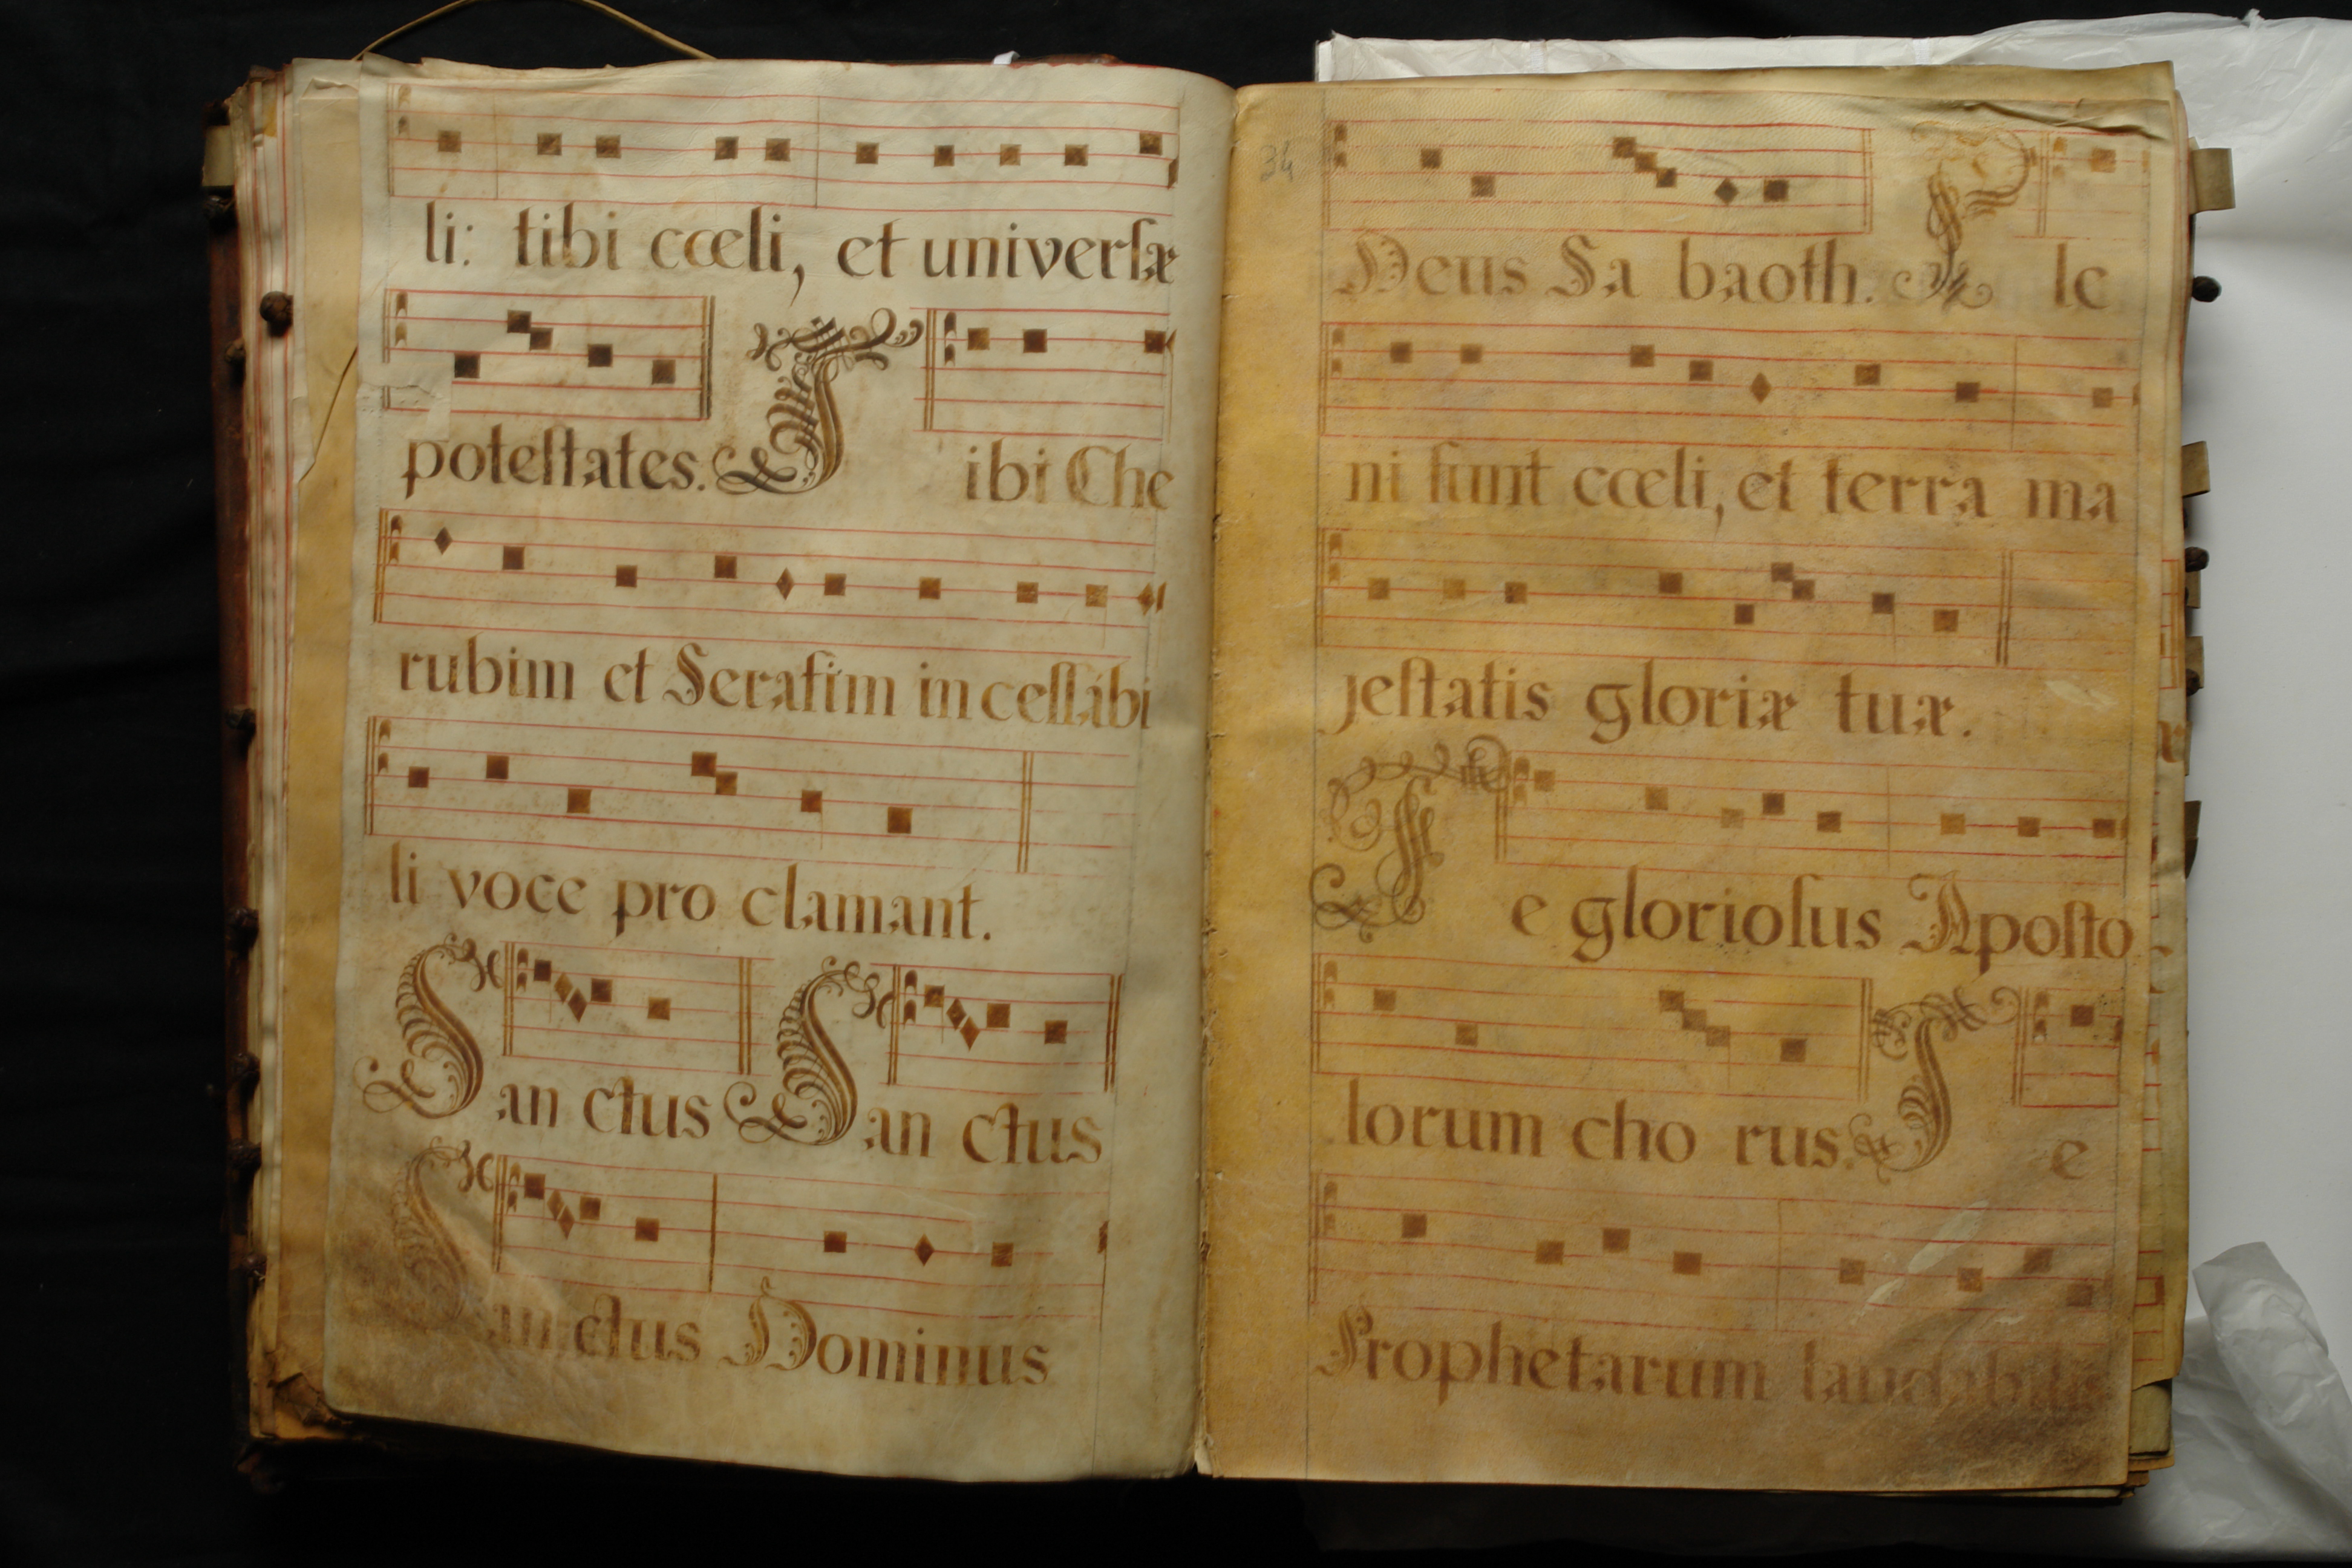 li: tibi cœli, et univerſæ
poteſtates. Tibi Che
rubim et Serafim inceſſábi
li voce pro clamant.
San ctus San ctus
San ctus Dominus
34
Deus Sa baoth. Ple
ni ſunt cœli, et terra ma
jeſtatis gloriæ tuæ.
Te glorioſus Apoſto
lorum cho rus. Te
Prophetarum laudabilis